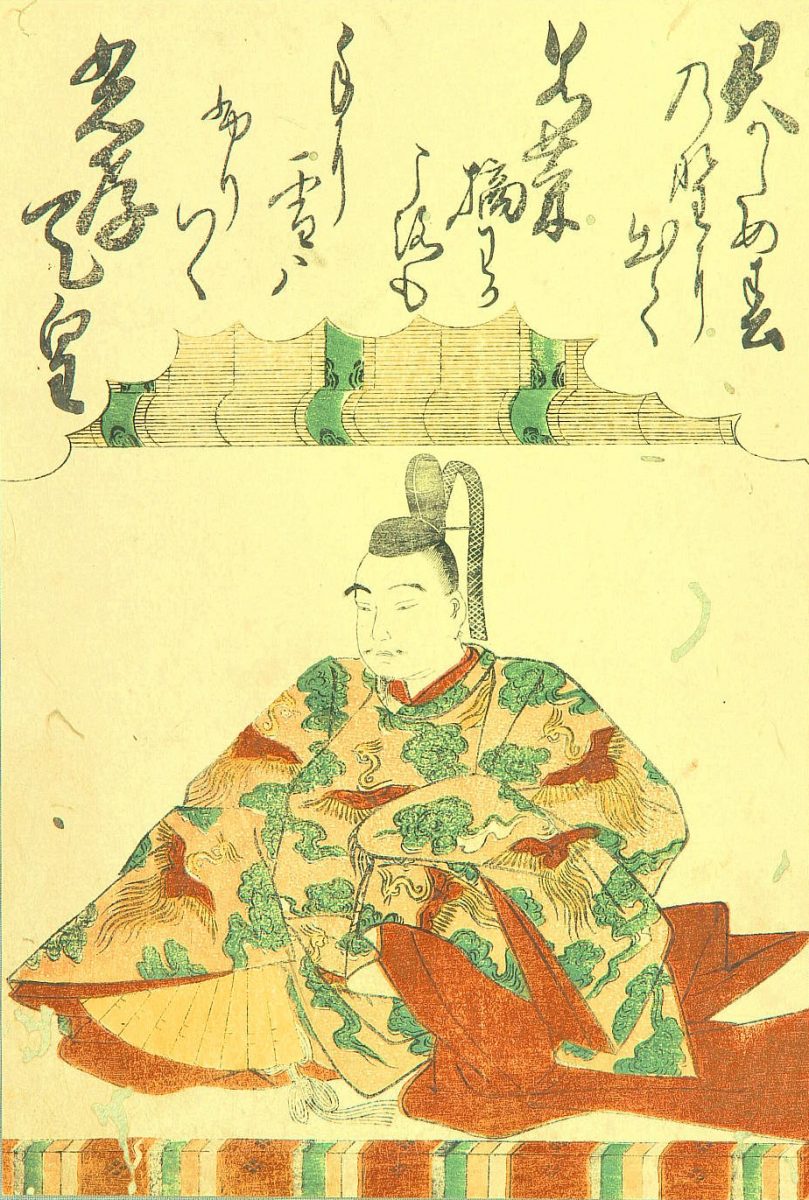 君かため春
乃野に
出て
若菜
摘わか
ころも
手に
雪ハ
ふり
つゝ
光孝
天皇